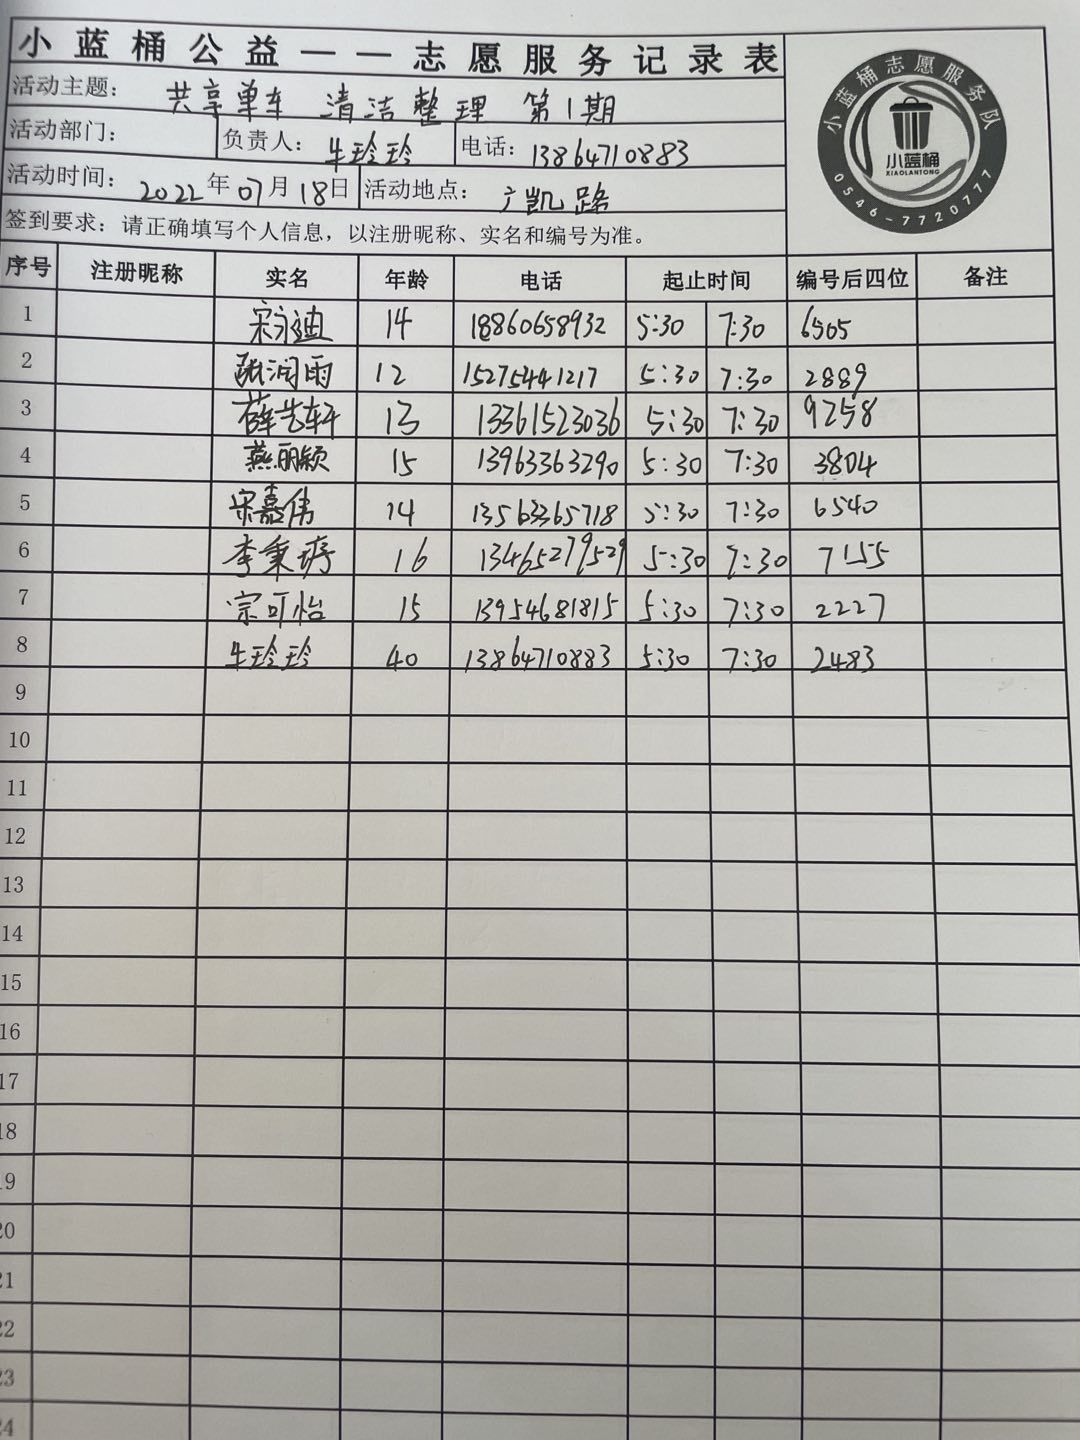 小蓝桶公益——志愿服务记录表
活动主题： 共享单车 清洁整理 第1期
活动部门： 负责人：牛玲玲 电话：13864710883
活动时间：2022年07月18日 活动地点：广凯路
签到要求：请正确填写个人信息，以注册昵称、实名和编号为准。
小蓝桶志愿服务队
小蓝桶
XIAOLANTONG
0546-7720777
序号 注册昵称 实名 年龄 电话 起止时间 编号后四位 备注
1 宋永迪 14 18860658932 5:30 7:30 6505
2 张润雨 12 15275441217 5:30 7:30 2889
3 薛艺轩 13 13361523036 5:30 7:30 9258
4 燕丽颖 15 13963363290 5:30 7:30 3804
5 宋嘉伟 14 13563365718 5:30 7:30 6540
6 李秉 16 13465279529 5:30 7:30 7155
7 宗可怡 15 13954681815 5:30 7:30 2227
8 牛玲玲 40 13864710883 5:30 7:30 2483
9
10
11
12
13
14
15
16
17
18
19
20
21
22
23
24